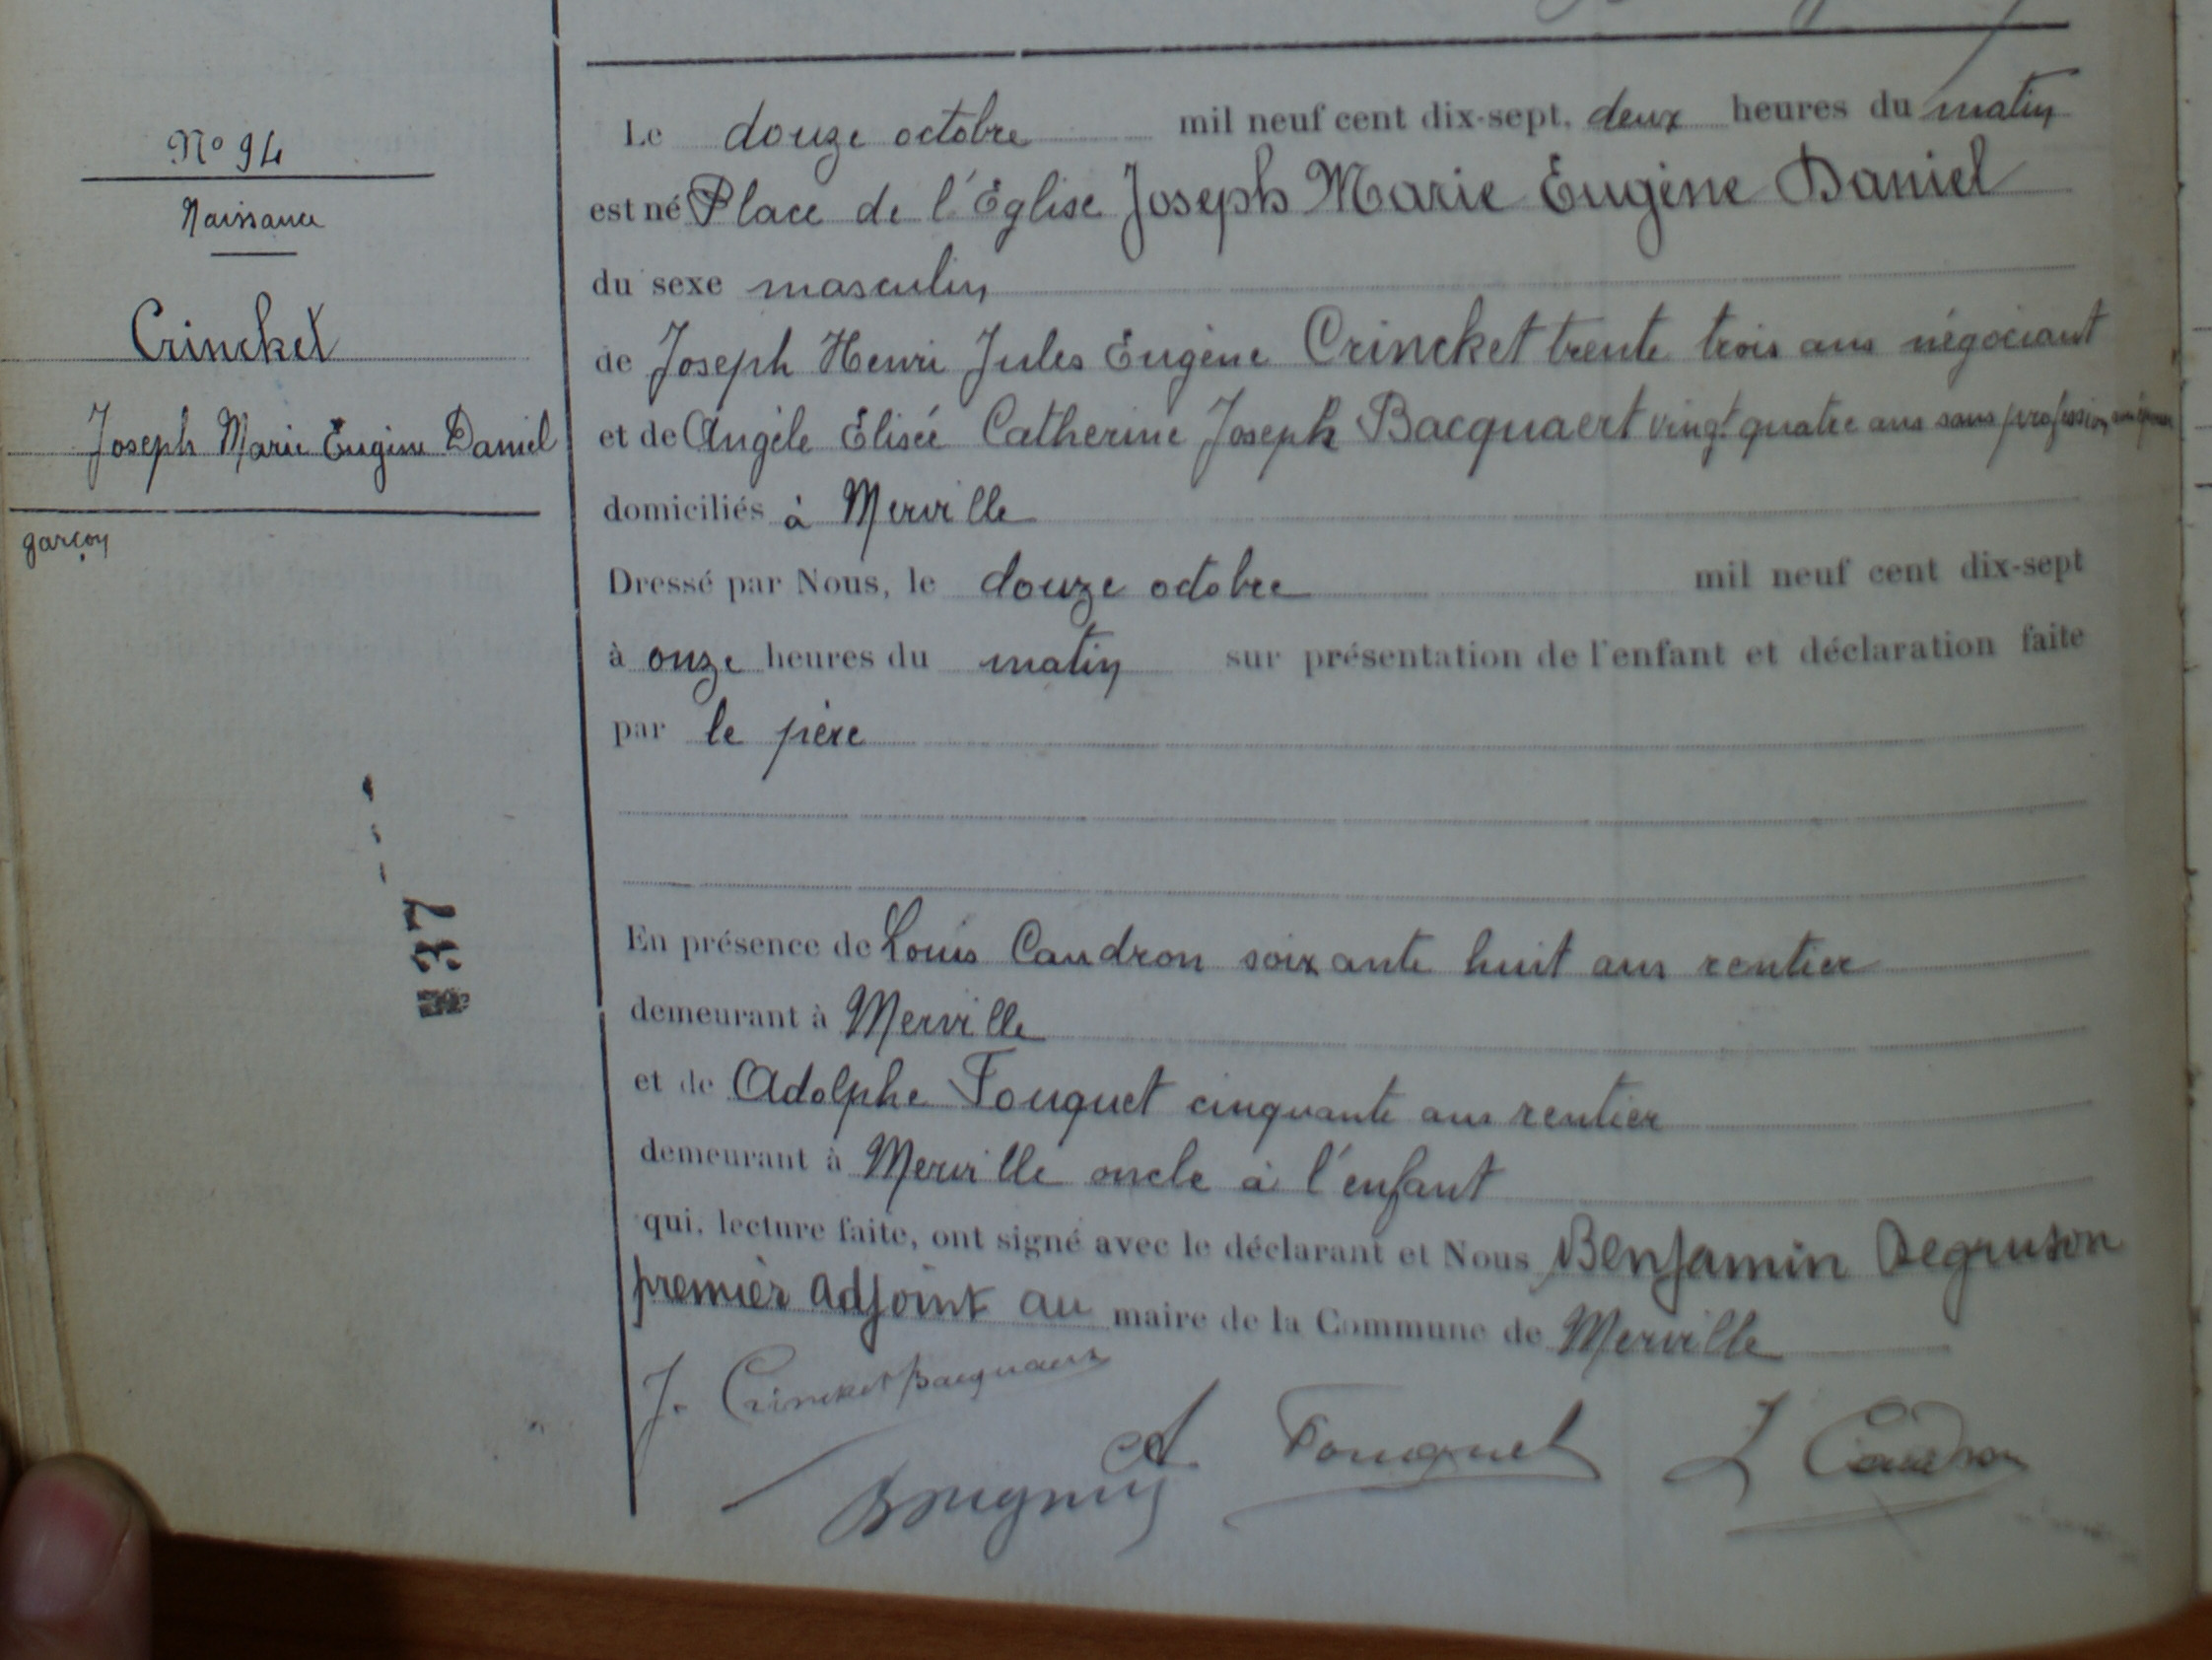 Nº 94
Naissance
Crincket
Joseph Marie Eugène Daniel
garçon
Le douze octobre mil neuf cent dix-sept, deux heures du matin
est né Place de l'Eglise Joseph Marie Eugène Daniel
du sexe masculin
de Joseph Henri Jules Eugène Crincket trente trois ans négociant
et de Angèle Elisée Catherine Joseph Bacquaert vingt quatre ans sans profession, son épouse
domiciliés à Merville
Dressé par Nous, le douze octobre mil neuf cent dix-sept
à onze heures du matin sur présentation de l'enfant et déclaration faite
par le père
En présence de Louis Caudron soixante huit ans rentier
demeurant à Merville
et de Adolphe Fouquet cinquante ans rentier
demeurant à Merville oncle à l'enfant
qui, lecture faite, ont signé avec le déclarant et Nous Benjamin Degruson
premier adjoint au maire de la Commune de Merville
J. Crincket Bacquaert
A Fouquet L Caudron
37